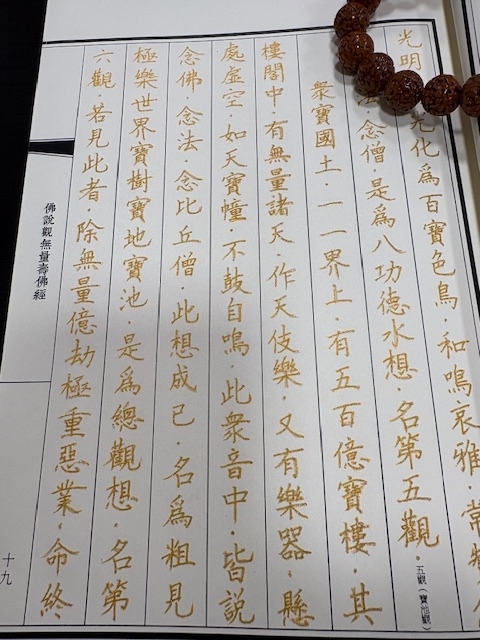 光明 光化爲百寶色鳥．和鳴哀雅．常
念僧．是爲八功德水想．名第五觀．五觀（寶池觀）
衆寶國土．一一界上．有五百億寶樓．其
樓閣中．有無量諸天．作天伎樂．又有樂器．懸
處虛空．如天寶幢．不鼓自鳴．此衆音中．皆說
念佛．念法．念比丘僧．此想成已．名爲粗見
極樂世界寶樹寶地寶池．是爲總觀想．名第
六觀．若見此者．除無量億劫極重惡業．命終
佛說觀無量壽佛經
十九